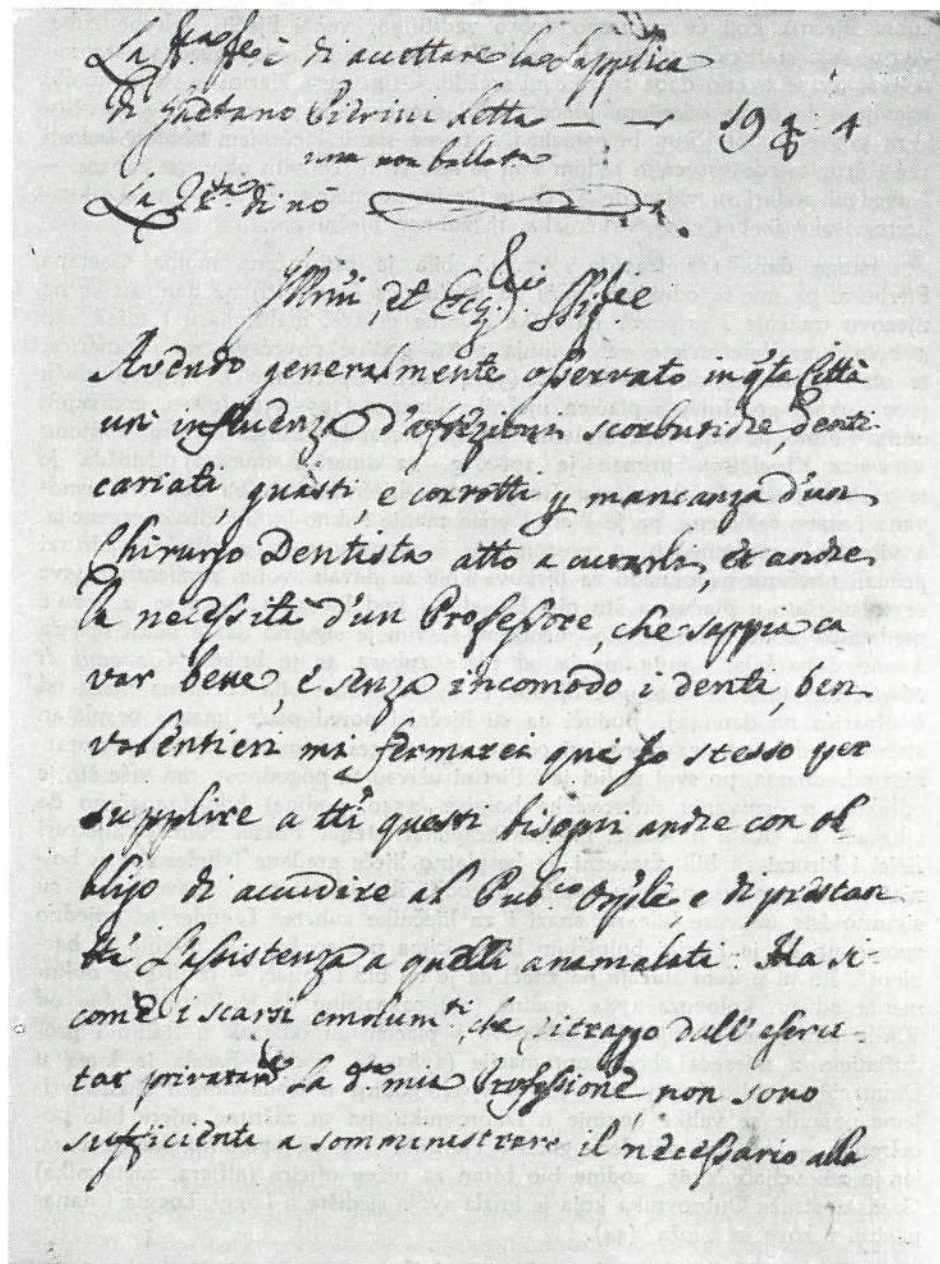 La Pma pte è di accettare la supplica
di Gaetano Pierini letta 19 4
una non ballata
La 2da di nò
Illmi, et Ecc.mi Sig.
Avendo generalmente osservato in q'sta Città
un' influenza d'afezioni scorbutiche, denti
cariati, guasti, e corrotti p mancanza d'un
Chirurgo Dentista atto a curarli, et anche
la necessità d'un Professore, che sappia ca
var bene, e senza incomodo i denti, ben
volentieri mi fermarei qui Io stesso per
supplire a tti questi bisogni anche con ob
bligo di accudire al Pubco Osple, e di prestar
L'assistenza a quelli ammalati. Ma si
come i scarsi emolumti, che si trappo dall' eserci
tar privatamte la dta mia Professione non sono
sufficienti a somministrare il necessario alla